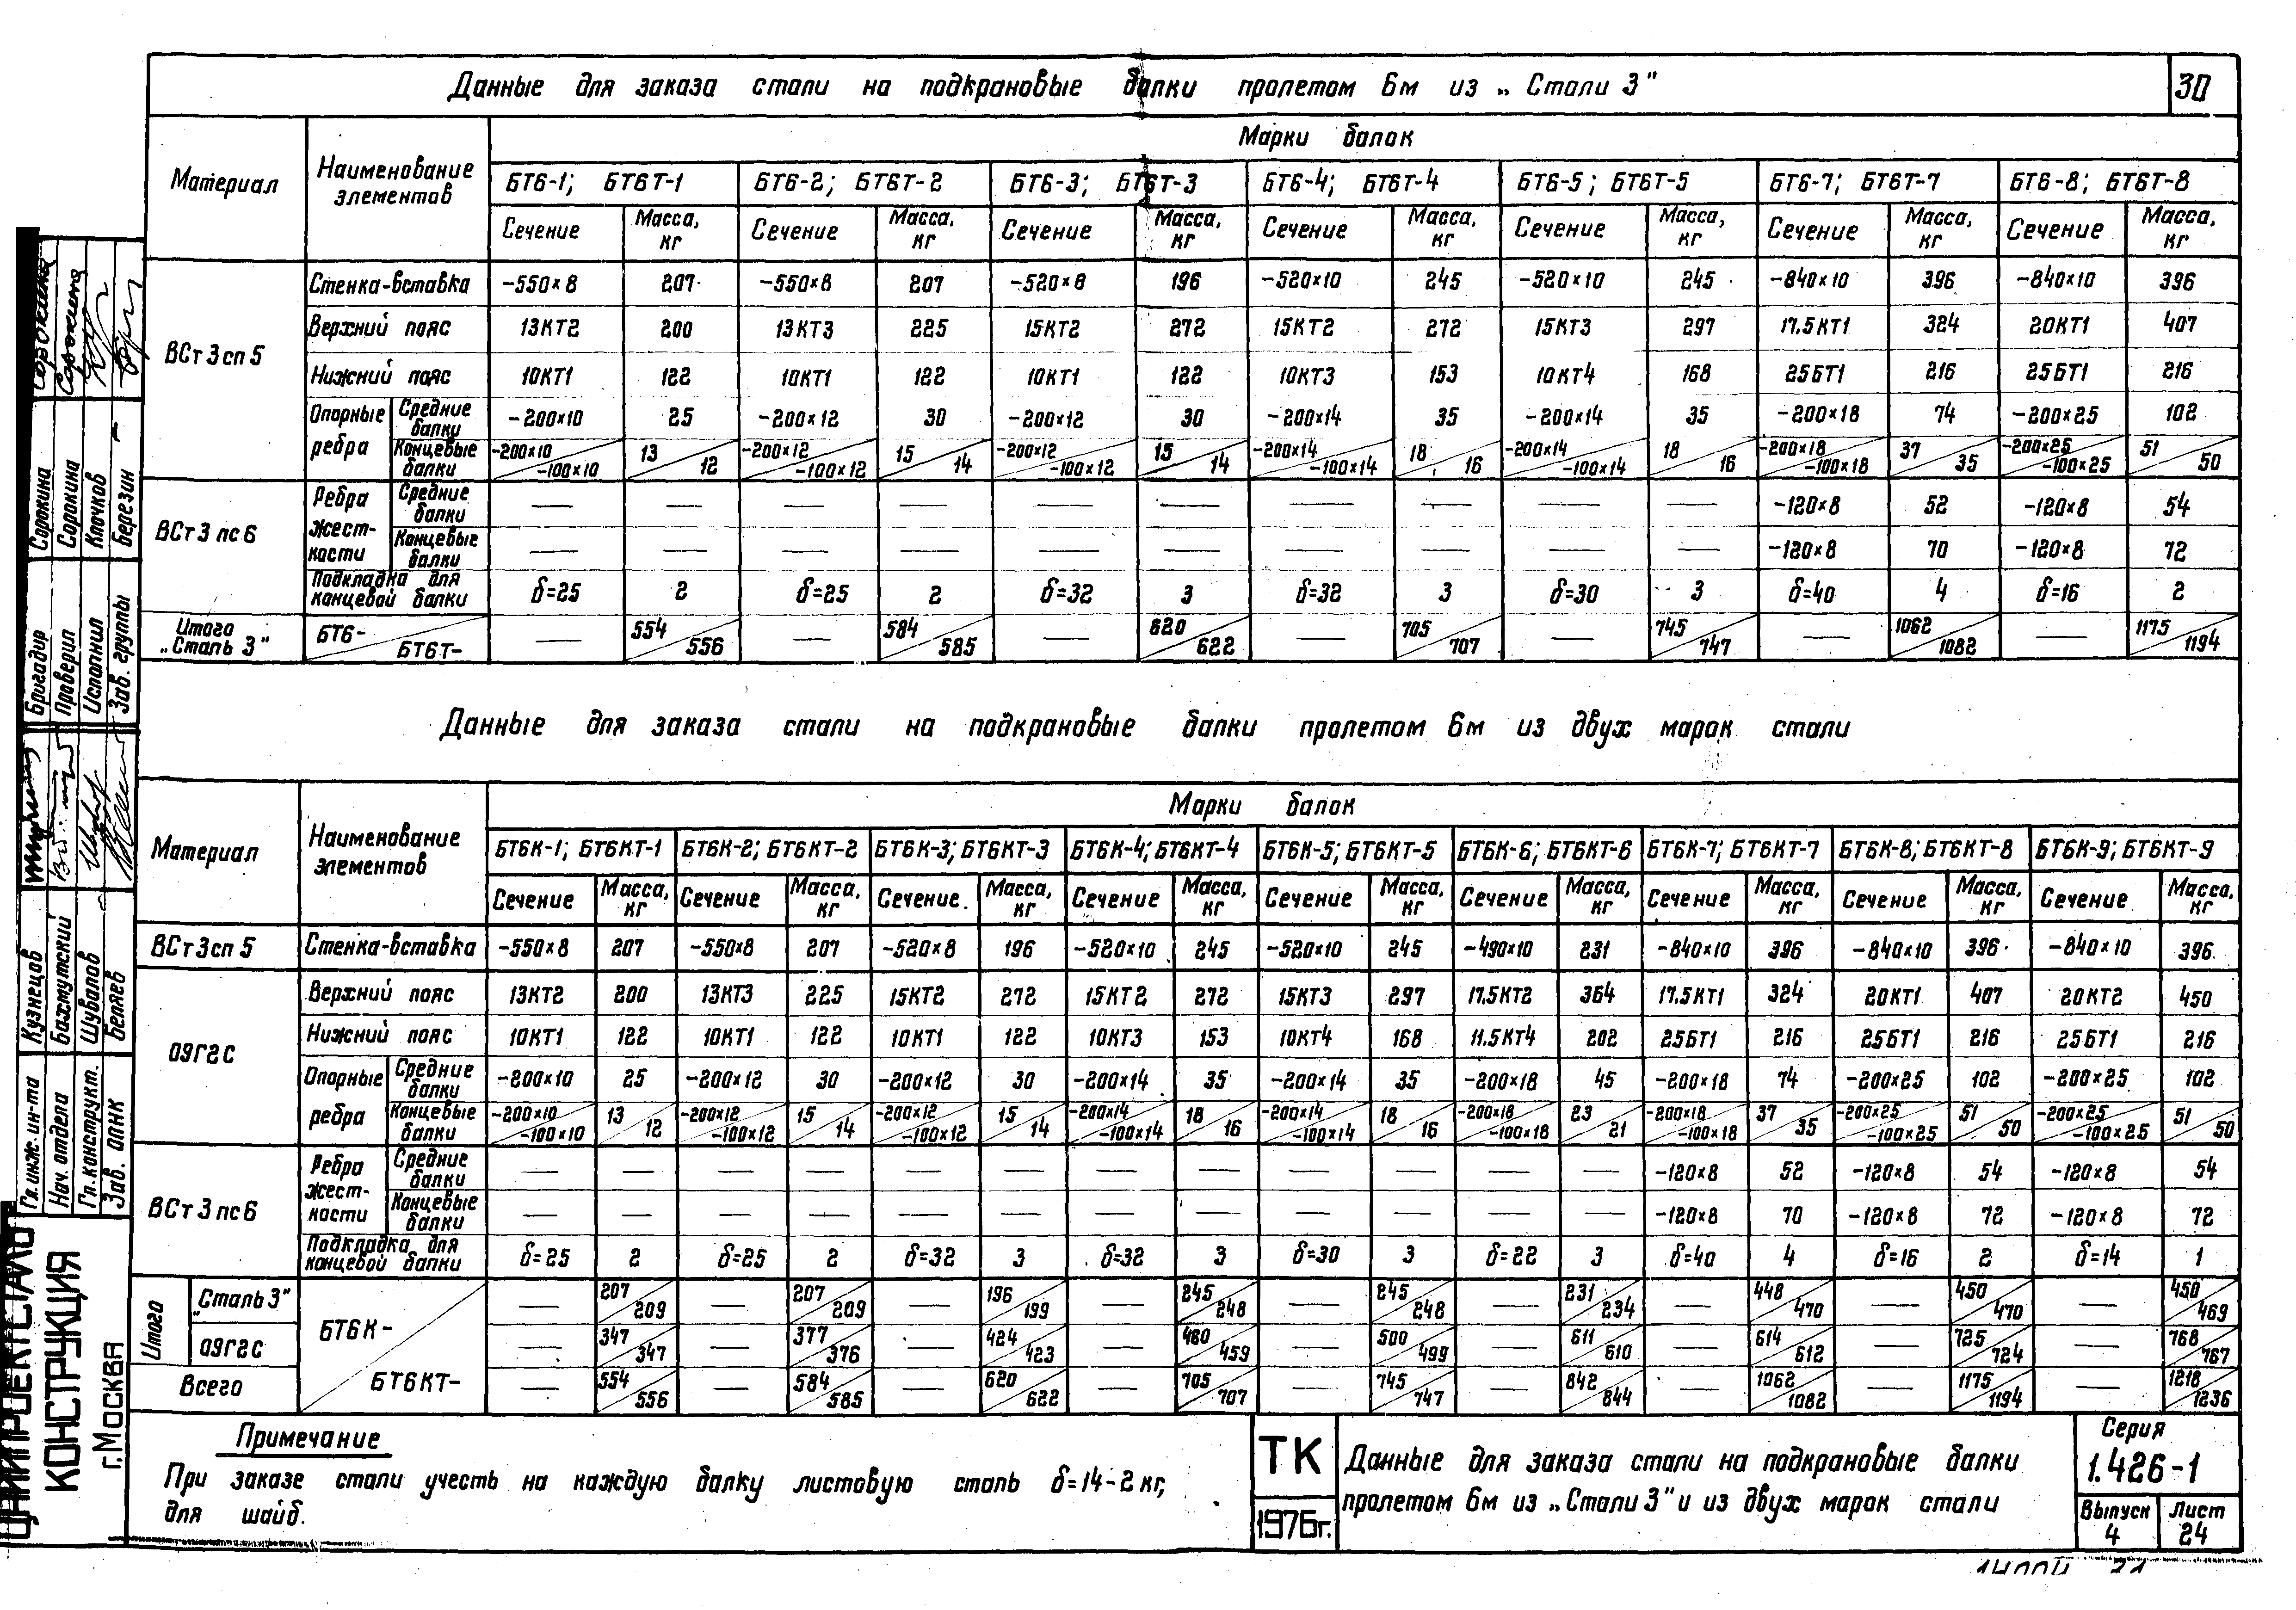 Данные для заказа стали на подкрановые балки пролетом 6м из „Стали 3"
30
Материал
Наименование элементов
Марки балок
БТ6-1; БТ6Т-1 БТ6-2; БТ6Т-2 БТ6-3; БТ6Т-3 БТ6-4; БТ6Т-4 БТ6-5; БТ6Т-5 БТ6-7; БТ6Т-7 БТ6-8; БТ6Т-8
Сечение Масса, кг Сечение Масса, кг Сечение Масса, кг Сечение Масса, кг Сечение Масса, кг Сечение Масса, кг Сечение Масса, кг
ВСт3сп5
Стенка-вставка -550×8 207 -550×8 207 -520×8 196 -520×10 245 -520×10 245 -840×10 396 -840×10 396
Верхний пояс 13КТ2 200 13КТ3 225 15КТ2 272 15КТ2 272 15КТ3 297 17.5КТ1 324 20КТ1 407
Нижний пояс 10КТ1 122 10КТ1 122 10КТ1 122 10КТ3 153 10КТ4 168 25БТ1 216 25БТ1 216
Опорные ребра
Средние балки -200×10 25 -200×12 30 -200×12 30 -200×14 35 -200×14 35 -200×18 74 -200×25 102
Концевые балки -200×10 -100×10 13 12 -200×12 -100×12 15 14 -200×12 -100×12 15 14 -200×14 -100×14 18 16 -200×14 -100×14 18 16 -200×18 -100×18 37 35 -200×25 -100×25 51 50
ВСт3пс6
Ребра жест-кости
Средние балки — — — — — — — — — — -120×8 52 -120×8 54
Концевые балки — — — — — — — — — — -120×8 70 -120×8 72
Подкладка для концевой балки δ=25 2 δ=25 2 δ=32 3 δ=32 3 δ=30 3 δ=40 4 δ=16 2
Итого „Сталь 3" БТ6- БТ6Т- — 554 556 — 584 585 — 620 622 — 705 707 — 745 747 — 1062 1082 — 1175 1194
Данные для заказа стали на подкрановые балки пролетом 6м из двух марок стали
Материал
Наименование элементов
Марки балок
БТ6К-1; БТ6КТ-1 БТ6К-2; БТ6КТ-2 БТ6К-3; БТ6КТ-3 БТ6К-4; БТ6КТ-4 БТ6К-5; БТ6КТ-5 БТ6К-6; БТ6КТ-6 БТ6К-7; БТ6КТ-7 БТ6К-8; БТ6КТ-8 БТ6К-9; БТ6КТ-9
Сечение Масса, кг Сечение Масса, кг Сечение Масса, кг Сечение Масса, кг Сечение Масса, кг Сечение Масса, кг Сечение Масса, кг Сечение Масса, кг Сечение Масса, кг
ВСт3сп5 Стенка-вставка -550×8 207 -550×8 207 -520×8 196 -520×10 245 -520×10 245 -490×10 231 -840×10 396 -840×10 396 -840×10 396
09Г2С
Верхний пояс 13КТ2 200 13КТ3 225 15КТ2 272 15КТ2 272 15КТ3 297 17.5КТ2 364 17.5КТ1 324 20КТ1 407 20КТ2 450
Нижний пояс 10КТ1 122 10КТ1 122 10КТ1 122 10КТ3 153 10КТ4 168 11.5КТ4 202 25БТ1 216 25БТ1 216 25БТ1 216
Опорные ребра
Средние балки -200×10 25 -200×12 30 -200×12 30 -200×14 35 -200×14 35 -200×18 45 -200×18 74 -200×25 102 -200×25 102
Концевые балки -200×10 -100×10 13 12 -200×12 -100×12 15 14 -200×12 -100×12 15 14 -200×14 -100×14 18 16 -200×14 -100×14 18 16 -200×18 -100×18 23 21 -200×18 -100×18 37 35 -200×25 -100×25 51 50 -200×25 -100×25 51 50
ВСт3пс6
Ребра жест-кости
Средние балки — — — — — — — — — — — — -120×8 52 -120×8 54 -120×8 54
Концевые балки — — — — — — — — — — — — -120×8 70 -120×8 72 -120×8 72
Подкладка для концевой балки δ=25 2 δ=25 2 δ=32 3 δ=32 3 δ=30 3 δ=22 3 δ=40 4 δ=16 2 δ=14 1
Итого
„Сталь 3" — 207 209 — 207 209 — 196 199 — 245 248 — 245 248 — 231 234 — 448 470 — 450 470 — 450 469
БТ6К-
09Г2С — 347 347 — 377 376 — 424 423 — 460 459 — 500 499 — 611 610 — 614 612 — 725 724 — 768 767
Всего БТ6КТ- — 554 556 — 584 585 — 620 622 — 705 707 — 745 747 — 842 844 — 1062 1082 — 1175 1194 — 1218 1236
Примечание
При заказе стали учесть на каждую балку листовую сталь δ=14-2кг,
для шайб.
ТК
1976г.
Данные для заказа стали на подкрановые балки
пролетом 6м из „Стали 3" и из двух марок стали
Серия
1.426-1
Выпуск 4
Лист 24
Бригадир Сорокина
Проверил Сорокина
Исполнил Клочков
Зав. группы Березин
Гл. инж. ин-та Кузнецов
Нач. отдела Бахмутский
Гл. конструкт. Шувалов
Зав. ОПНК Беляев
ЦНИИПРОЕКТСТАЛЬ
КОНСТРУКЦИЯ
г. Москва